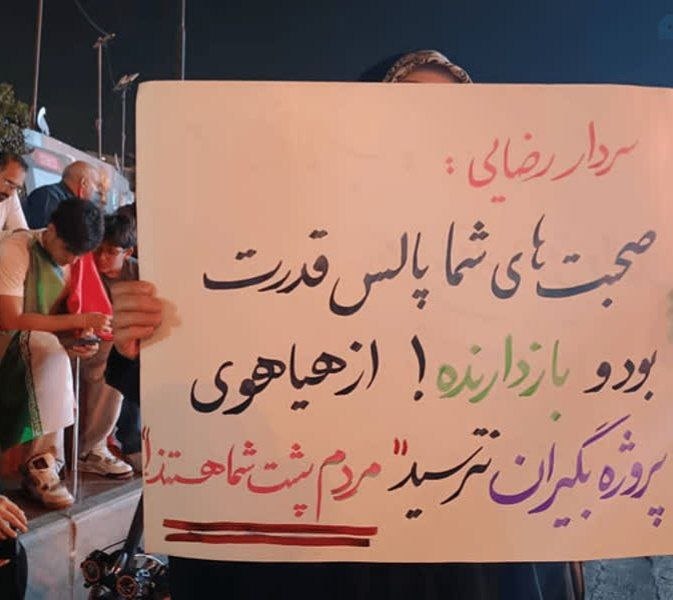 سردار رضایی :
صحبت های شما پالس قدرت
بود و بازدارنده ! از هیاهوی
پروژه بگیران نترسید "مردم پشت شما هستند!"